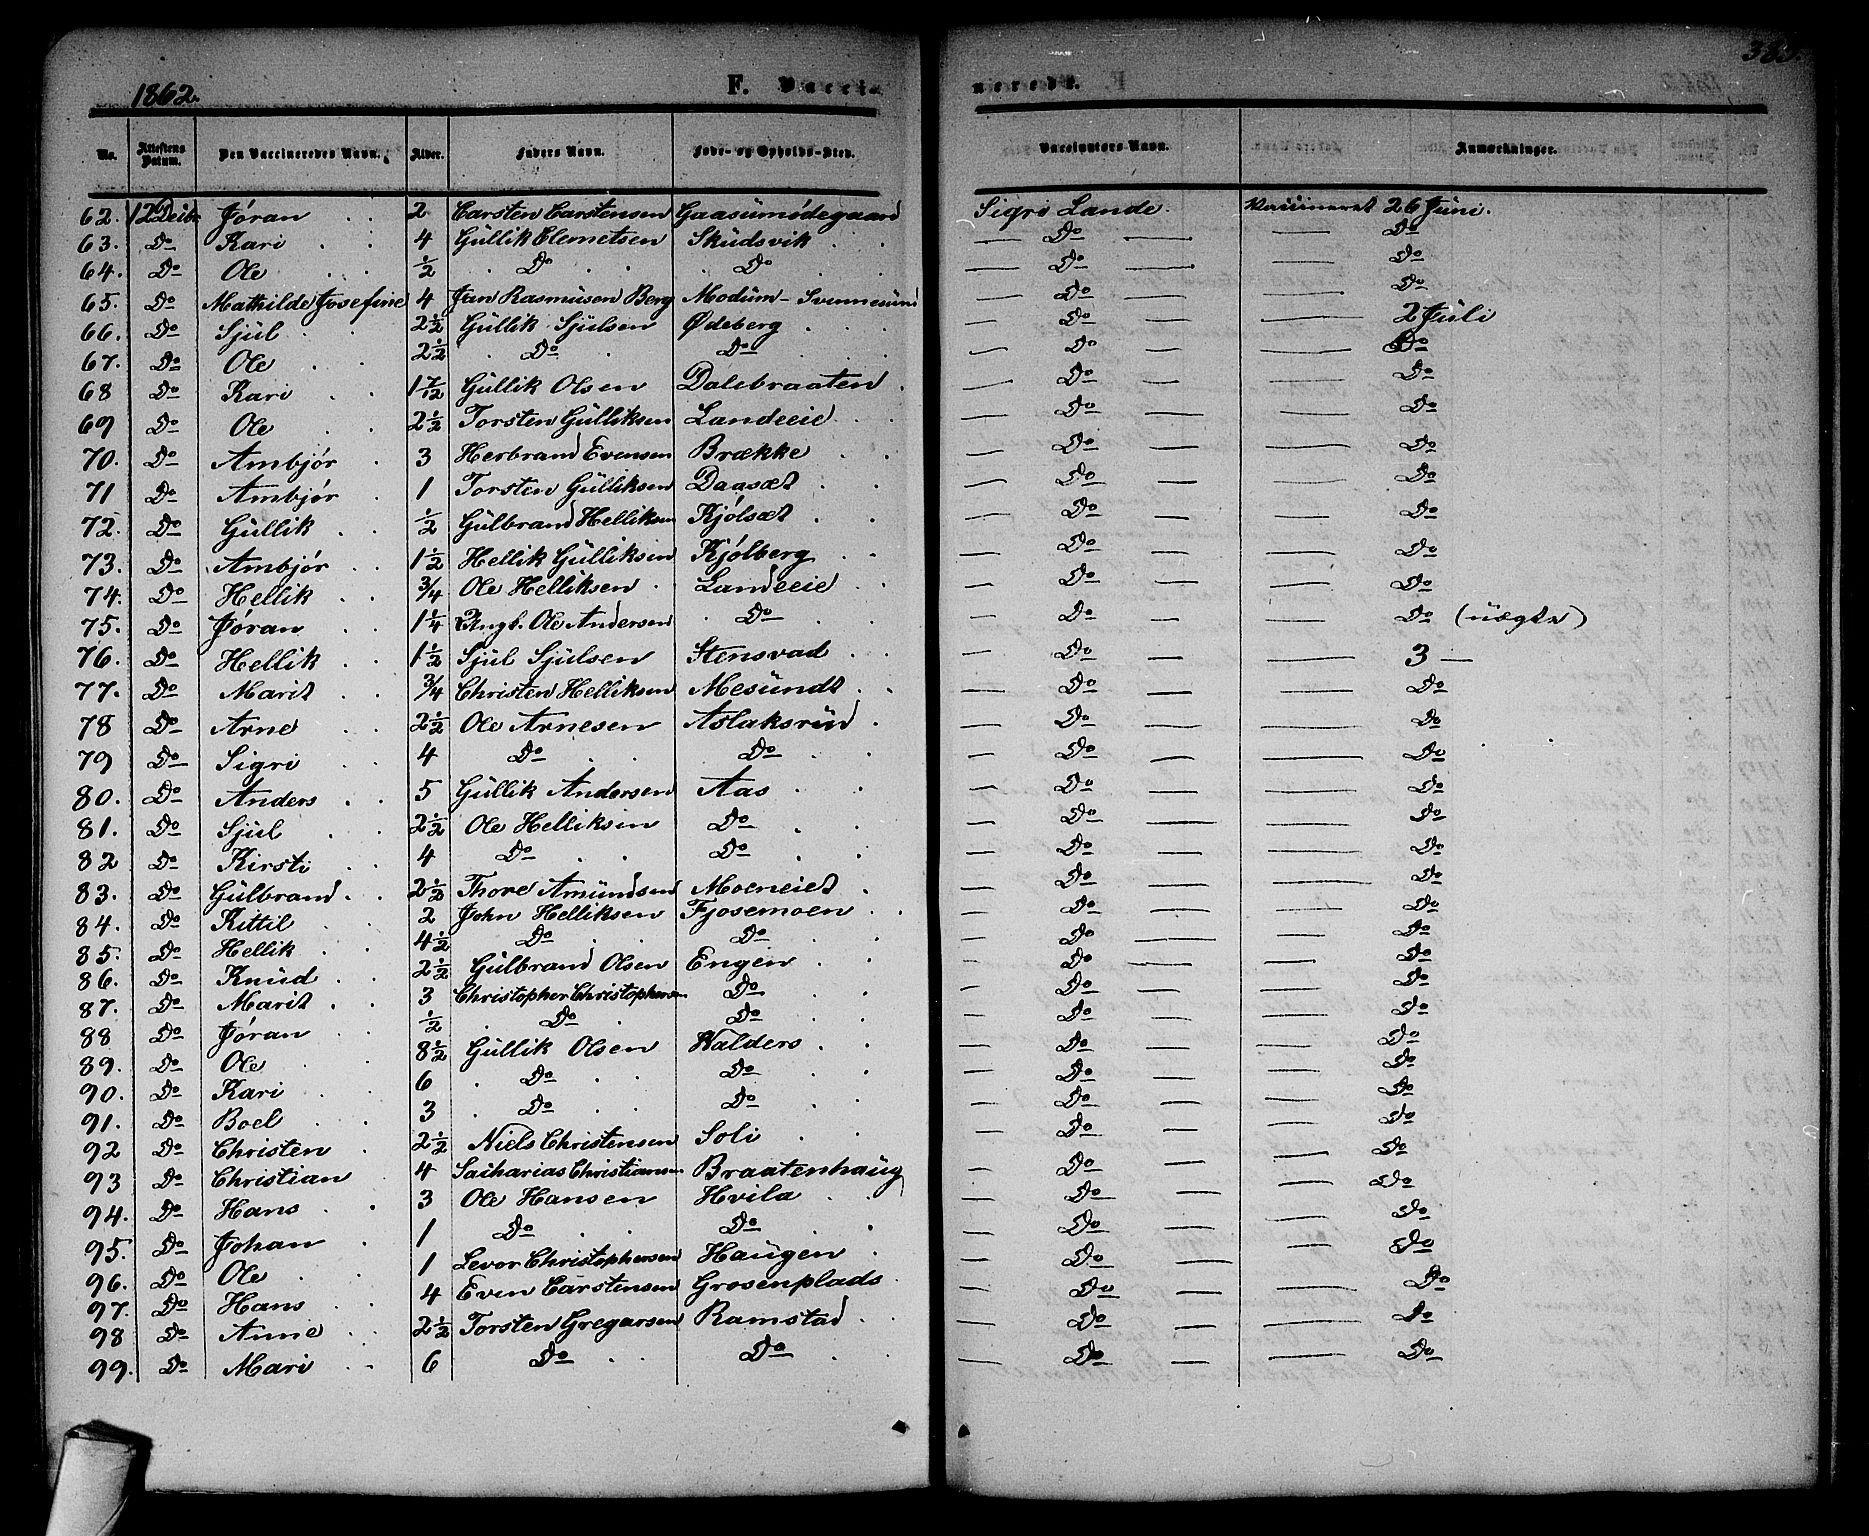 1862. F. Vacci- nerede. 383.
No. Attestens Datum. Den Vaccineredes Navn. Alder. Faders Navn. Føde- og Opholds-Sted. Vaccinators Navn. Anmærkninger.
62. 12 Decbr Jøran 2 Carsten Carstensen Gaasumødegaard Sigri Lande. Vaccineret 26 Juni.
63. Do Kari 4 Güllik Clemetsen Sküdsvik — Do — — Do
64. Do Ole ½ Do Do — Do — — Do
65. Do Mathilde Josefine 4 Jan Rasmüsen Berg Modüm - Svinnesünd — Do — — Do
66. Do Sjül 2½ Güllik Sjülsen Ødeberg — Do — — 2 Jüli
67. Do Ole 2½ Do Do — Do — — Do
68 Do Kari 1 7/12 Güllik Olsen Dalebraaten — Do — — Do
69 Do Ole 2½ Torsten Gülliksen Landeeie — Do — — Do
70. Do Ambjør 3 Herbrand Evensen Brække — Do — — Do
71 Do Ambjør 1 Torsten Gülliksen Daasæt — Do — — Do
72. Do Güllik ½ Gülbrand Helliksen Kjølsæt — Do — — Do
73. Do Ambjør 1½ Hellik Gülliksen Kjølberg — Do — — Do
74. Do Hellik ¾ Ole Helliksen Landeeie — Do — — Do
75. Do Jøran 1¼ Ungk. Ole Andersen Do — Do — — Do (üægte)
76. Do Hellik 1½ Sjül Sjülsen Stensvad — Do — — 3 —
77. Do Marit ¾ Christen Helliksen Mesündt — Do — — Do
78 Do Arne 2½ Ole Arnesen Aslaksrüd — Do — — Do
79 Do Sigri 4 Do Do — Do — — Do
80. Do Anders 5 Güllik Andersen Aas — Do — — Do
81. Do Sjül 2½ Ole Helliksen Do — Do — — Do
82 Do Kirsti 4 Do Do — Do — — Do
83. Do Gülbrand 2½ Thore Amündsen Moeneiet — Do — — Do
84. Do Kittil 2 John Helliksen Fjosemoen — Do — — Do
85. Do Hellik 4½ Do Do — Do — — Do
86. Do Knüd 2½ Gülbrand Olsen Engen — Do — — Do
87. Do Marit 3 Christopher Christophersen Do — Do — — Do
88 Do Jøran ½ Do Do — Do — — Do
89. Do Ole 8½ Güllik Olsen Valders — Do — — Do
90. Do Kari 6 Do Do — Do — — Do
91. Do Boel 3 Do Do — Do — — Do
92 Do Christen 2½ Niels Christensen Soli — Do — — Do
93 Do Christian 4 Sacharias Christiansen Braatenhaüg — Do — — Do
94. Do Hans 3 Ole Hansen Hvila — Do — — Do
95. Do Johan 1 Do Do — Do — — Do
96. Do Ole 1 Levor Christophersen Haügen — Do — — Do
97. Do Hans 4 Even Carstensen Grosenplads — Do — — Do
98 Do Anne 2½ Torsten Gregarsen Ramstad — Do — — Do
99. Do Mari 6 Do Do — Do — — Do